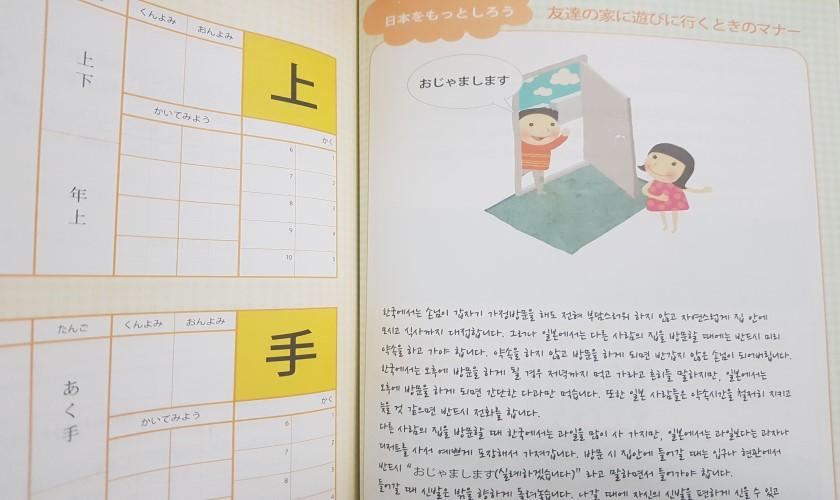 くんよみ おんよみ
上
上下
かいてみよう
かく
6 1
7 2
8 3
9 4
10 5
年上
たんご くんよみ おんよみ
手
あく手
かいてみよう
かく
6 1
7 2
8 3
日本をもっとしろう
友達の家に遊びに行くときのマナー
おじゃまします
한국에서는 손님이 갑자기 가정방문을 해도 전혀 부담스러워 하지 않고 자연스럽게 집 안에
모시고 식사까지 대접합니다. 그러나 일본에서는 다른 사람의 집을 방문할 때에는 반드시 미리
약속을 하고 가야 합니다. 약속을 하지 않고 방문을 하게 되면 반갑지 않은 손님이 되어버립니다.
한국에서는 오후에 방문을 하게 될 경우 저녁까지 먹고 가라고 흔히들 말하지만, 일본에서는
오후에 방문을 하게 되면 간단한 다과만 먹습니다. 또한 일본 사람들은 약속시간을 철저히 지키고
늦을 것 같으면 반드시 전화를 합니다.
다른 사람의 집을 방문할 때 한국에서는 과일을 많이 사 가지만, 일본에서는 과일보다는 과자나
디저트를 사서 예쁘게 포장해서 가져갑니다. 방문 시 집안에 들어갈 때는 입구나 현관에서
반드시 "おじゃまします(실례하겠습니다)" 라고 말하면서 들어가야 합니다.
들어갈 때 신발은 밖을 향하게 돌려놓습니다. 나갈 때에 자신의 신발을 편하게 신을 수 있고